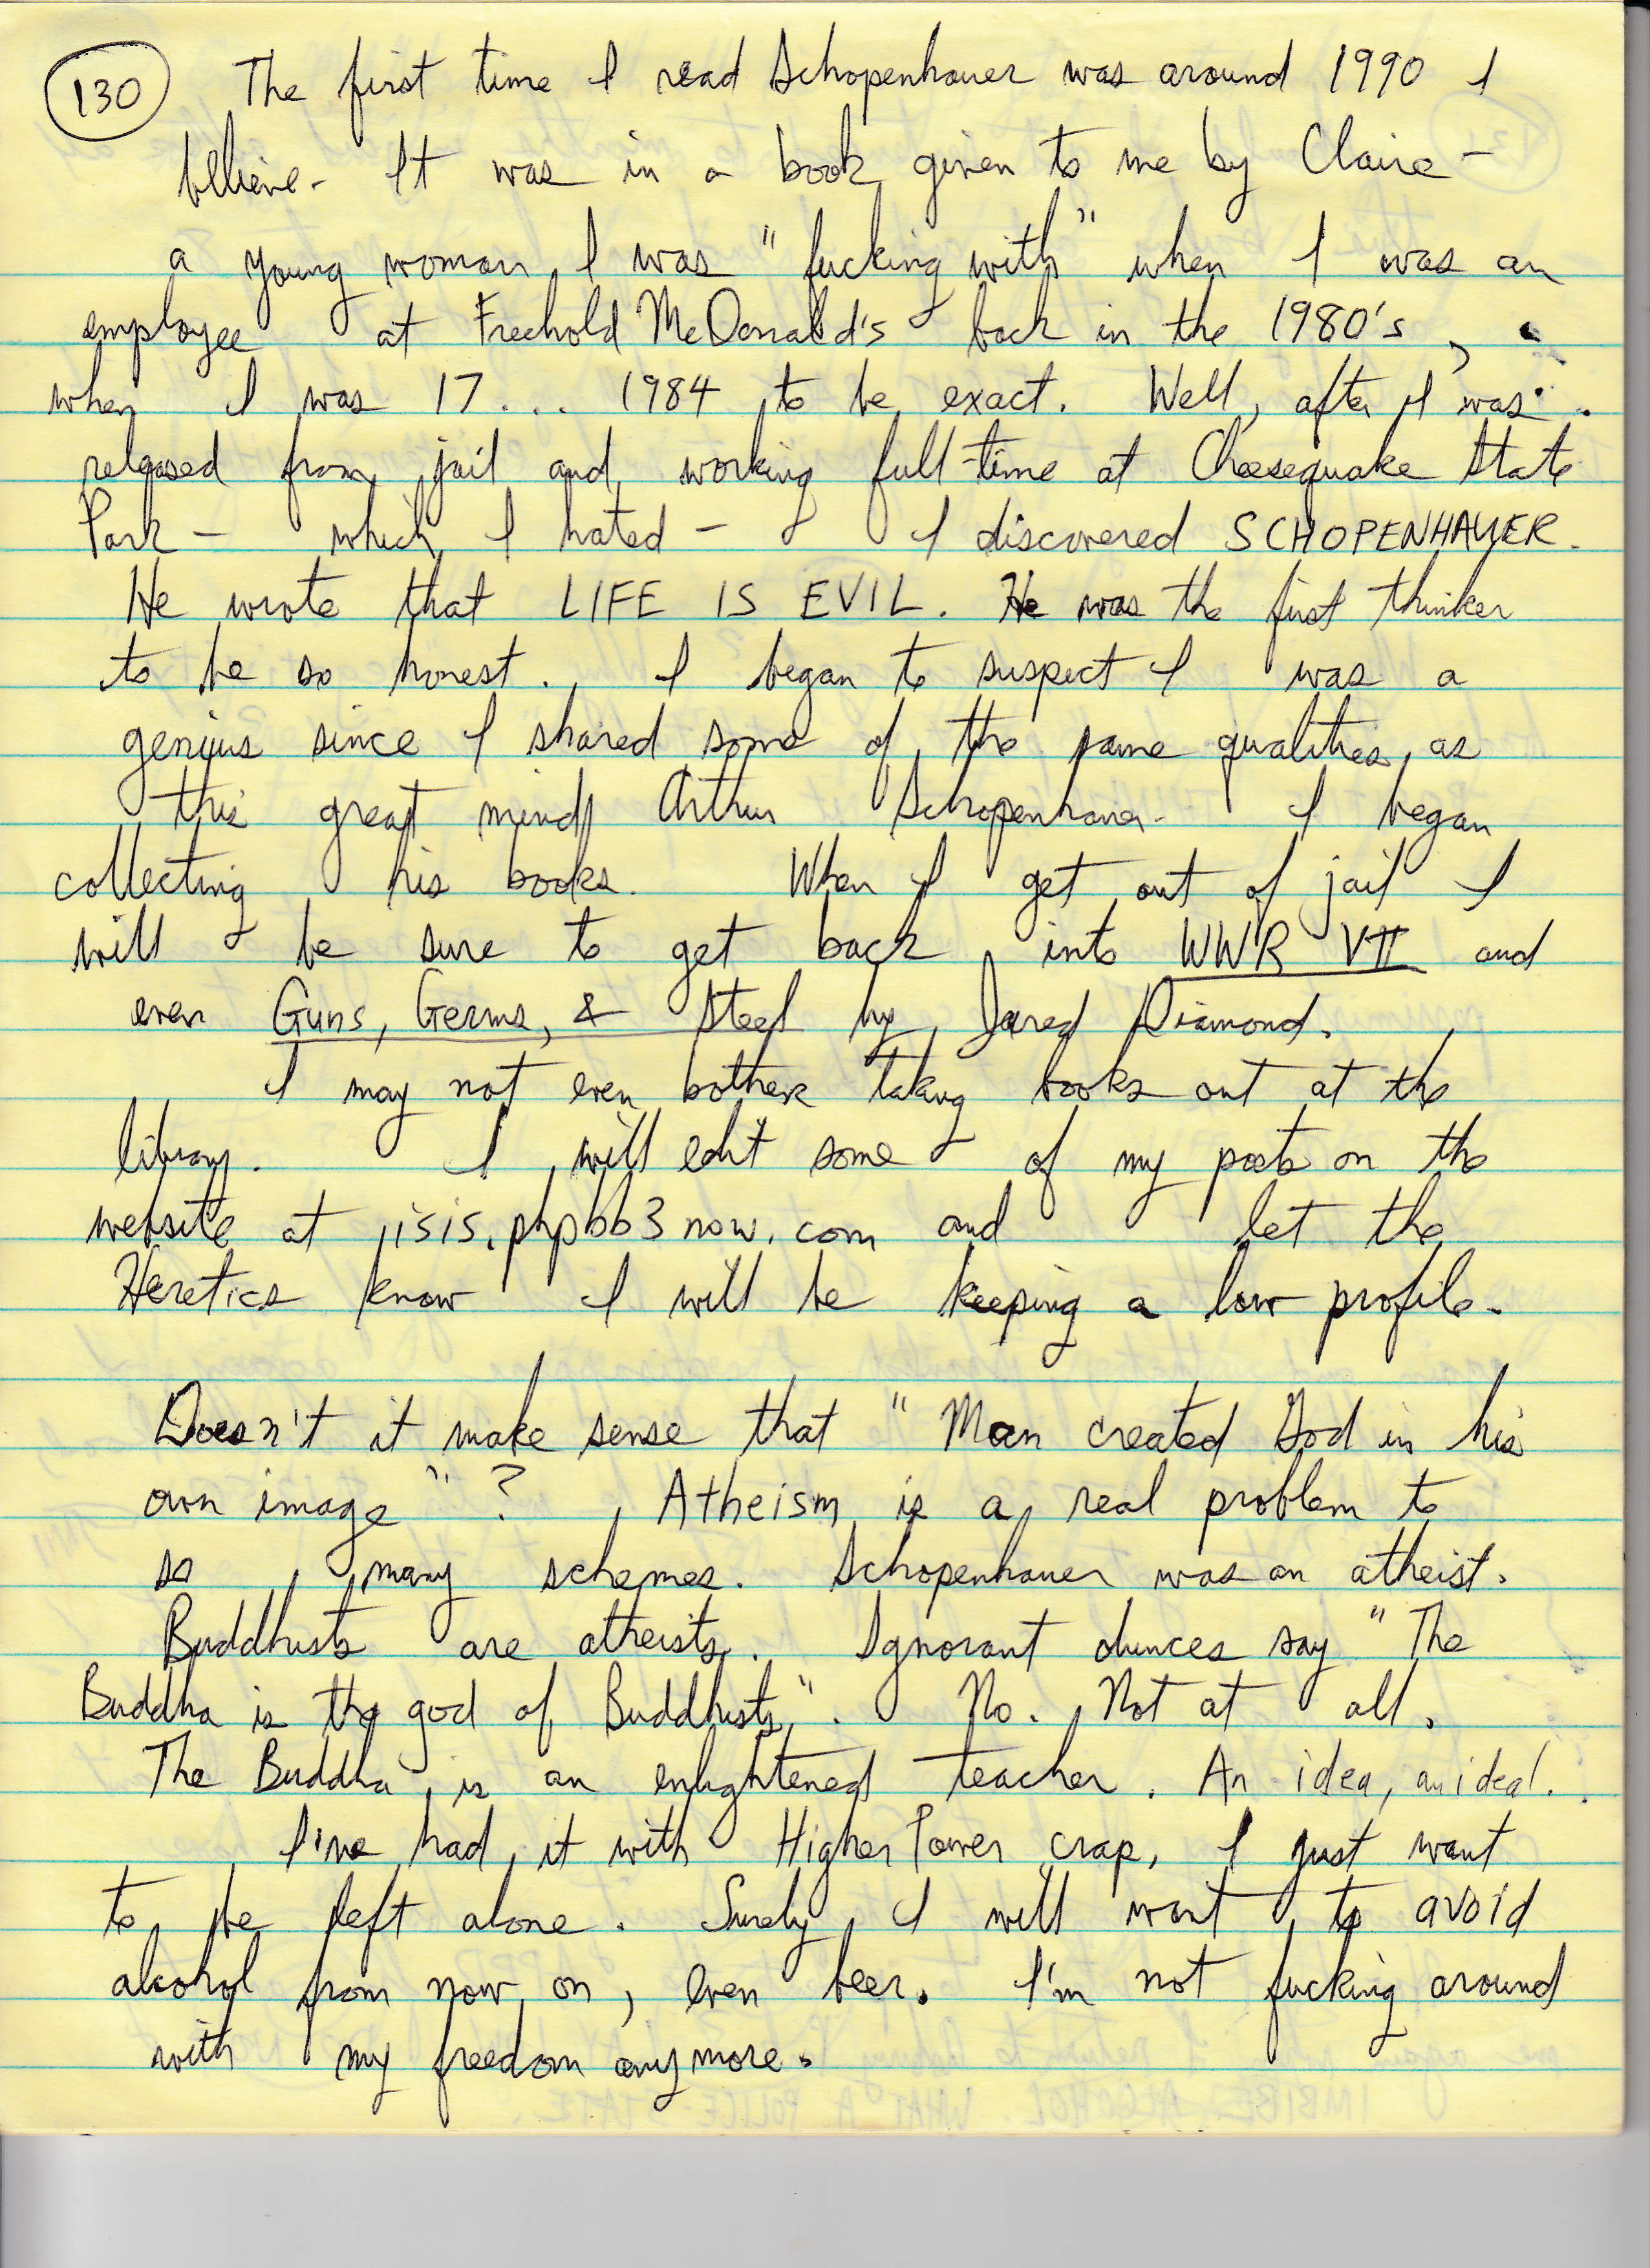 130 The first time I read Schopenhauer was around 1990 I
believe. It was in a book given to me by Claire -
a young woman I was "fucking with" when I was an
employee at Freehold McDonald's back in the 1980's,
when I was 17... 1984 to be exact. Well, after I was
released from jail and working full-time at Cheesequake State
Park - which I hated - I discovered SCHOPENHAUER.
He wrote that LIFE IS EVIL. He was the first thinker
to be so honest. I began to suspect I was a
genius since I shared some of the same qualities as
this great mind Arthur Schopenhauer. I began
collecting his books. When I get out of jail I
will be sure to get back into WWR VII and
even Guns, Germs, & Steel by Jared Diamond.
I may not even bother taking books out at the
library. I will edit some of my posts on the
website at isis.phpbb3now.com and let the
Heretics know I will be keeping a low profile.
Doesn't it make sense that "Man created God in his
own image"? Atheism is a real problem to
so many schemes. Schopenhauer was an atheist.
Buddhists are atheists. Ignorant dunces say "The
Buddha is the god of Buddhists". No. Not at all.
The Buddha is an enlightened teacher. An idea, an ideal.
I've had it with Higher Power crap, I just want
to be left alone. Surely I will want to avoid
alcohol from now on, even beer. I'm not fucking around
with my freedom anymore.